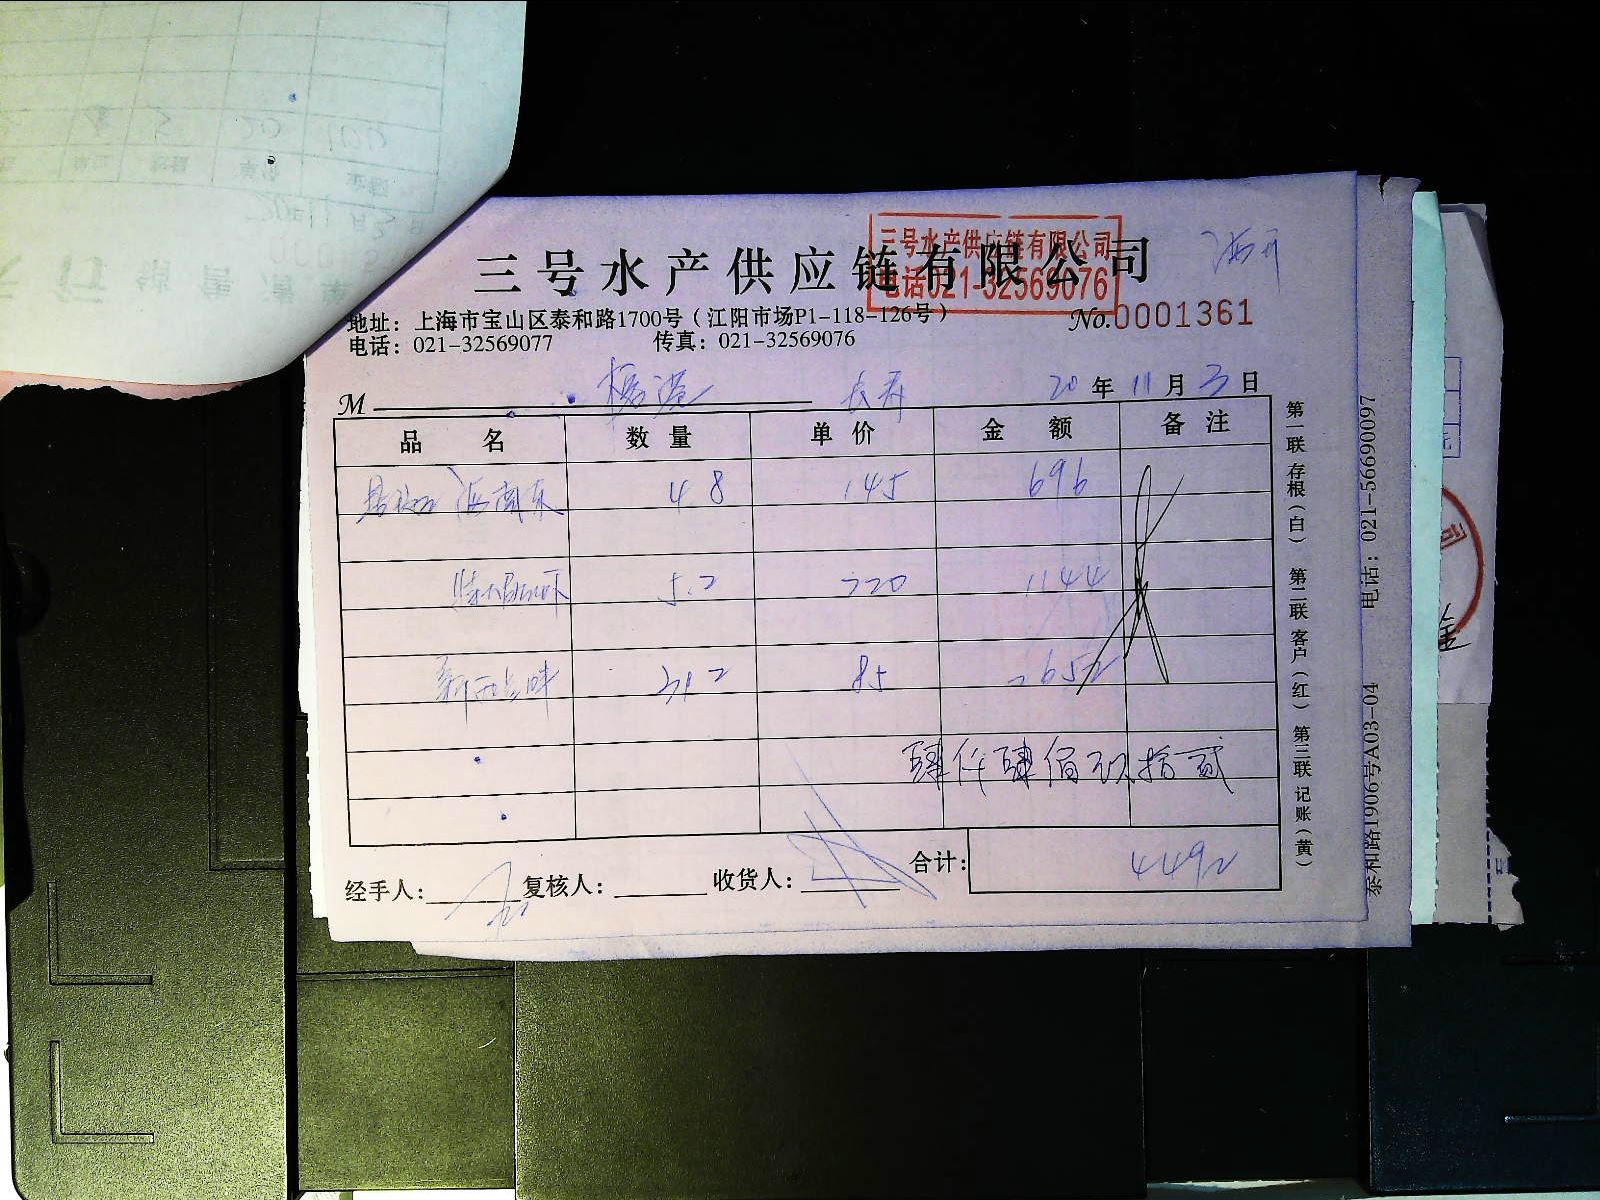 三号水产供应链有限公司
三号水产供应链有限公司
电话021-32569076
地址：上海市宝山区泰和路1700号（江阳市场P1-118-126号）
No.0001361
电话：021-32569077 传真：021-32569076
M 长寿 20年11月3日
品名 数量 单价 金额 备注
4.8 145 696
5.2 220 1144
31.2 85 2652
肆仟肆佰玖拾贰
合计：4492
经手人： 复核人： 收货人：
第一联 存根（白） 第二联 客户（红） 第三联 记账（黄）
泰和路1906号A03-04 电话：021-56690097